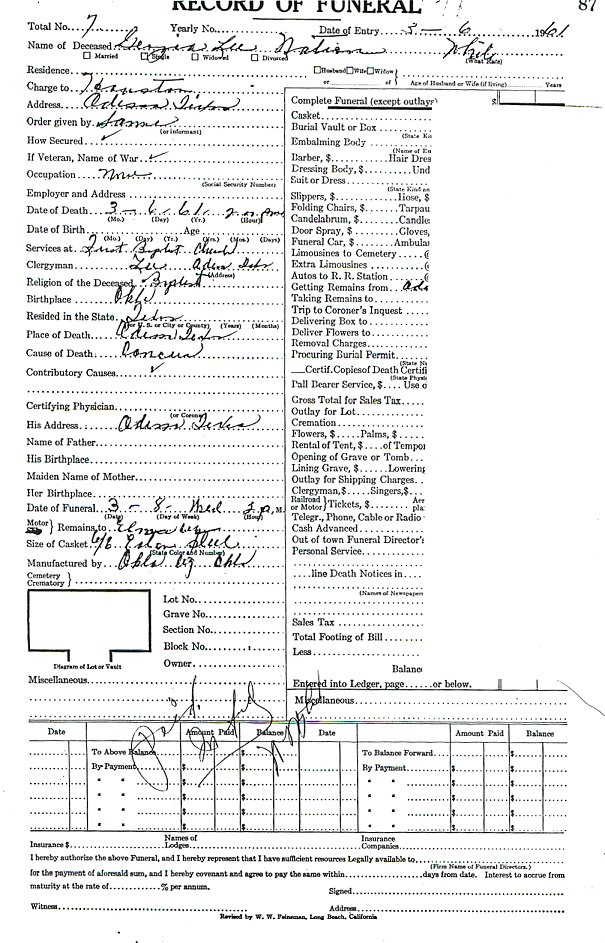 RECORD OF FUNERAL 87
Total No. 7 Yearly No. Date of Entry 3 - 6 1961
Name of Deceased Lee
Married Single Widowed Divorced (What Race)
Residence Husband Wife Widow
or of Age of Husband or Wife (if living) Years
Charge to Houston
Address Odessa Texas
Order given by Same
(or informant)
How Secured
If Veteran, Name of War
Occupation None
(Social Security Number)
Employer and Address
Date of Death 3 - 6 - 61
(Mo.) (Day) (Yr.) (Hour)
Date of Birth Age
(Mo.) (Day) (Yr.) (Yrs.) (Mos.) (Days)
Services at First Baptist Church
Clergyman Lee Odessa
(Address)
Religion of the Deceased Baptist
Birthplace Okla
Resided in the State
(or U. S. or City or County) (Years) (Months)
Place of Death Odessa Texas
Cause of Death
Contributory Causes
Certifying Physician
(or Coroner)
His Address Odessa Texas
Name of Father
His Birthplace
Maiden Name of Mother
Her Birthplace
Date of Funeral 3 - 8 - Wed 2 P. M.
(Date) (Day of Week) (Hour)
Motor Remains to
Size of Casket 6/6 Steel
(State Color and Number)
Manufactured by Okla Okla
Cemetery
Crematory
Lot No.
Grave No.
Section No.
Block No.
Owner
Diagram of Lot or Vault
Miscellaneous
Complete Funeral (except outlays $
Casket
Burial Vault or Box
(State Ki
Embalming Body
(Name of En
Barber, $ Hair Dres
Dressing Body, $ Und
Suit or Dress
(State Kind an
Slippers, $ Hose, $
Folding Chairs, $ Tarpau
Candelabrum, $ Candle
Door Spray, $ Gloves,
Funeral Car, $ Ambula
Limousines to Cemetery (
Extra Limousines (
Autos to R. R. Station (
Getting Remains from
Taking Remains to
Trip to Coroner's Inquest
Delivering Box to
Deliver Flowers to
Removal Charges
Procuring Burial Permit
(State N
Certif. Copies of Death Certifi
(State Physik
Pall Bearer Service, $ Use o
Gross Total for Sales Tax
Outlay for Lot
Cremation
Flowers, $ Palms, $
Rental of Tent, $ of Tempor
Opening of Grave or Tomb
Lining Grave, $ Lowering
Outlay for Shipping Charges
Clergyman, $ Singers, $
Railroad or Motor Tickets, $ Aer pla
Telegr., Phone, Cable or Radio
Cash Advanced
Out of town Funeral Director's
Personal Service
line Death Notices in
(Names of Newspaper
Sales Tax
Total Footing of Bill
Less
Balance
Entered into Ledger, page or below.
Miscellaneous
Paid
Date Amount Paid Balance Date Amount Paid Balance
To Above Balance $ To Balance Forward $
By Payment $ $ By Payment $ $
" " $ $ " " $ $
" " $ $ " " $ $
" " $ $ " " $ $
Insurance $ Names of Lodges Insurance Companies
I hereby authorize the above Funeral, and I hereby represent that I have sufficient resources Legally available to
(Firm Name of Funeral Directors.)
for the payment of aforesaid sum, and I hereby covenant and agree to pay the same within days from date. Interest to accrue from
maturity at the rate of % per annum. Signed
Witness Address
Revised by W. W. Feineman, Long Beach, California